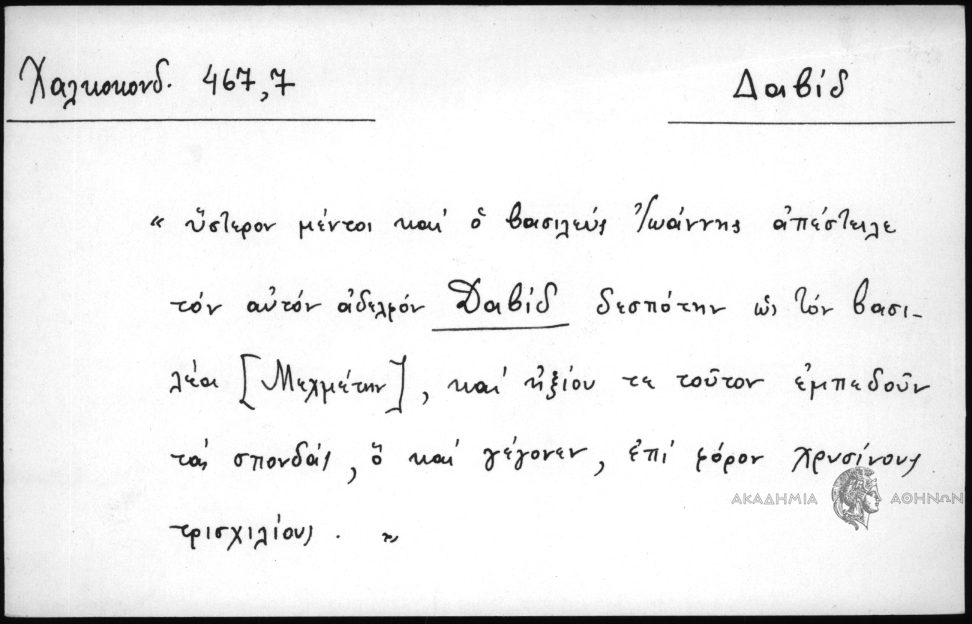 Χαλκοκονδ. 467,7
Δαβίδ
« ὕστερον μέντοι καί ὁ βασιλεύς Ἰωάννης ἀπέστειλε
τόν αὐτόν ἀδελφόν Δαβίδ δεσπότην ὡς τόν βασι-
λέα [Μεχμέτην], καί ἠξίου τε τοῦτον ἐμπεδοῦν
τάς σπονδάς, ὅ καί γέγονεν, ἐπί φόρον χρυσίνους
ΑΚΑΔΗΜΙΑ ΑΘΗΝΩΝ
τρισχιλίους. »